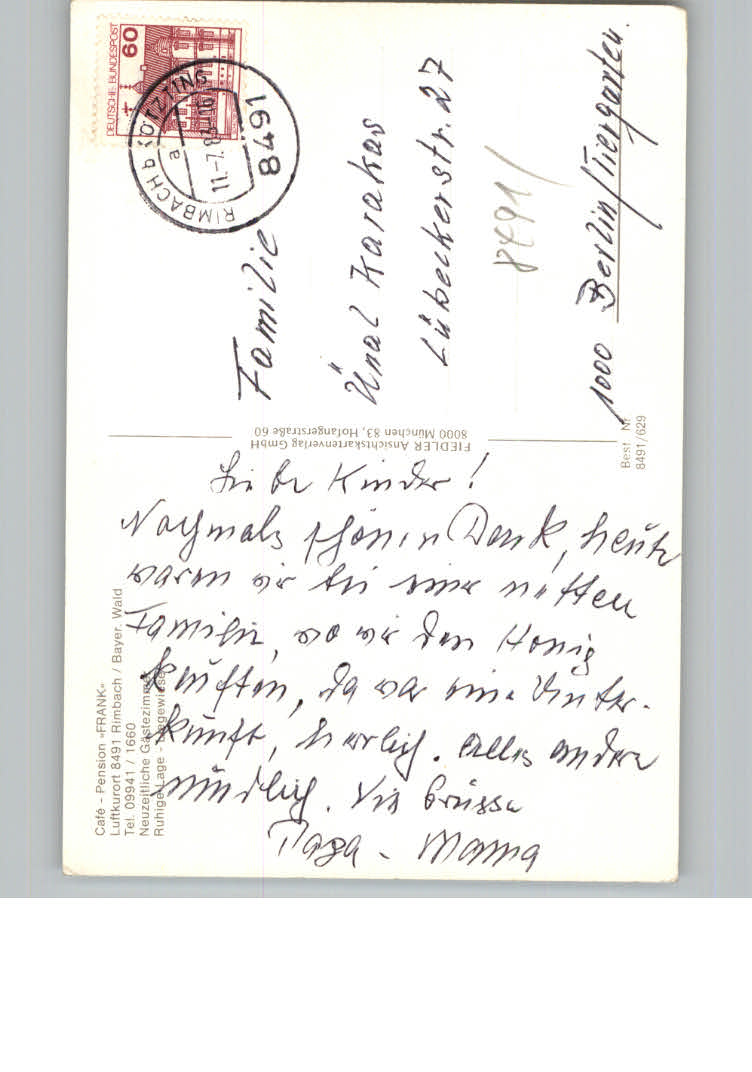 DEUTSCHE BUNDESPOST
60
RIMBACH b KÖTZTING
a
11.-7.
8491
Familie
Ünal Karakas
Lübeckerstr. 27
8491/
1000 Berlin/Tiergarten.
FIEDLER Ansichtskartenverlag GmbH
8000 München 83, Hofangerstraße 60
Best. Nr.
8491/629
Liebe Kinder!
Nochmals schönen Dank, heute
waren wir bei einer netten
Familie, wo wir den Honig
kauften, da war eine Unter-
kunft, herrlich. Alles andere
mündlich. Viele Grüsse
Papa - Mama
Café - Pension »FRANK«
Luftkurort 8491 Rimbach / Bayer. Wald
Tel. 09941 / 1660
Neuzeitliche Gästezimmer
Ruhige Lage - Liegewiese